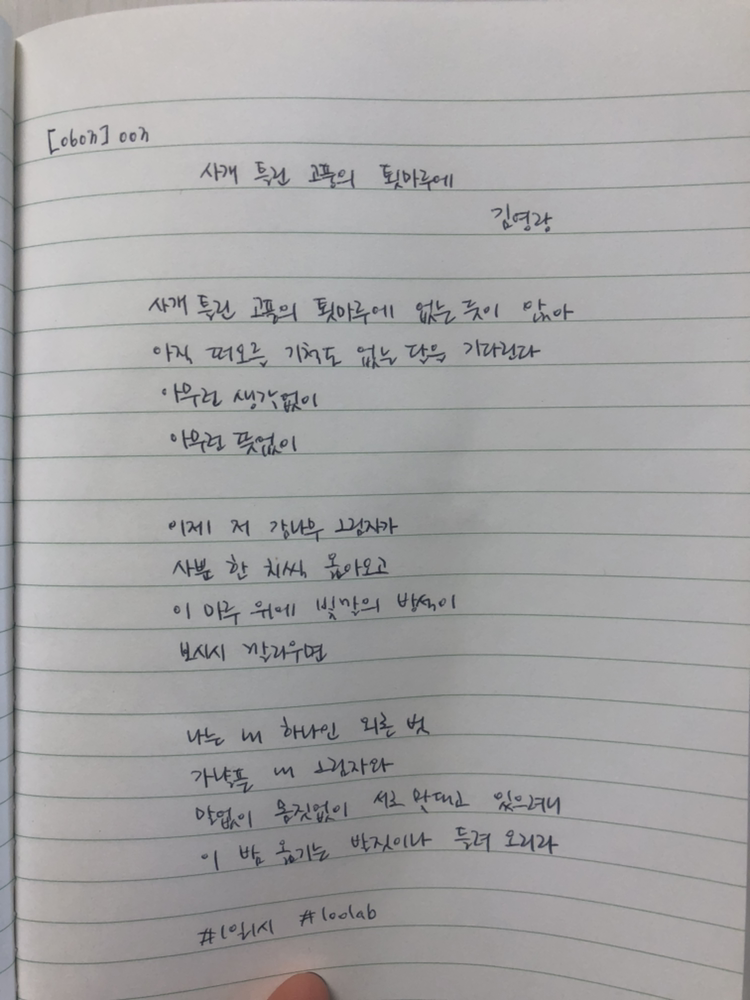 [060일] 00일
사개 틀린 고풍의 툇마루에
김영랑
사개 틀린 고풍의 툇마루에 없는 듯이 앉아
아직 떠오를 기척도 없는 달을 기다린다
아무런 생각없이
아무런 뜻없이
이제 저 감나무 그림자가
사뿐 한 치씩 옮아오고
이 마루 위에 빛깔의 방석이
보시시 깔리우면
나는 내 하나인 외론 벗
가냘픈 내 그림자와
말없이 몸짓없이 서로 맞대고 있으려니
이 밤 옮기는 발짓이나 들려 오리라
#1일1시 #100lab